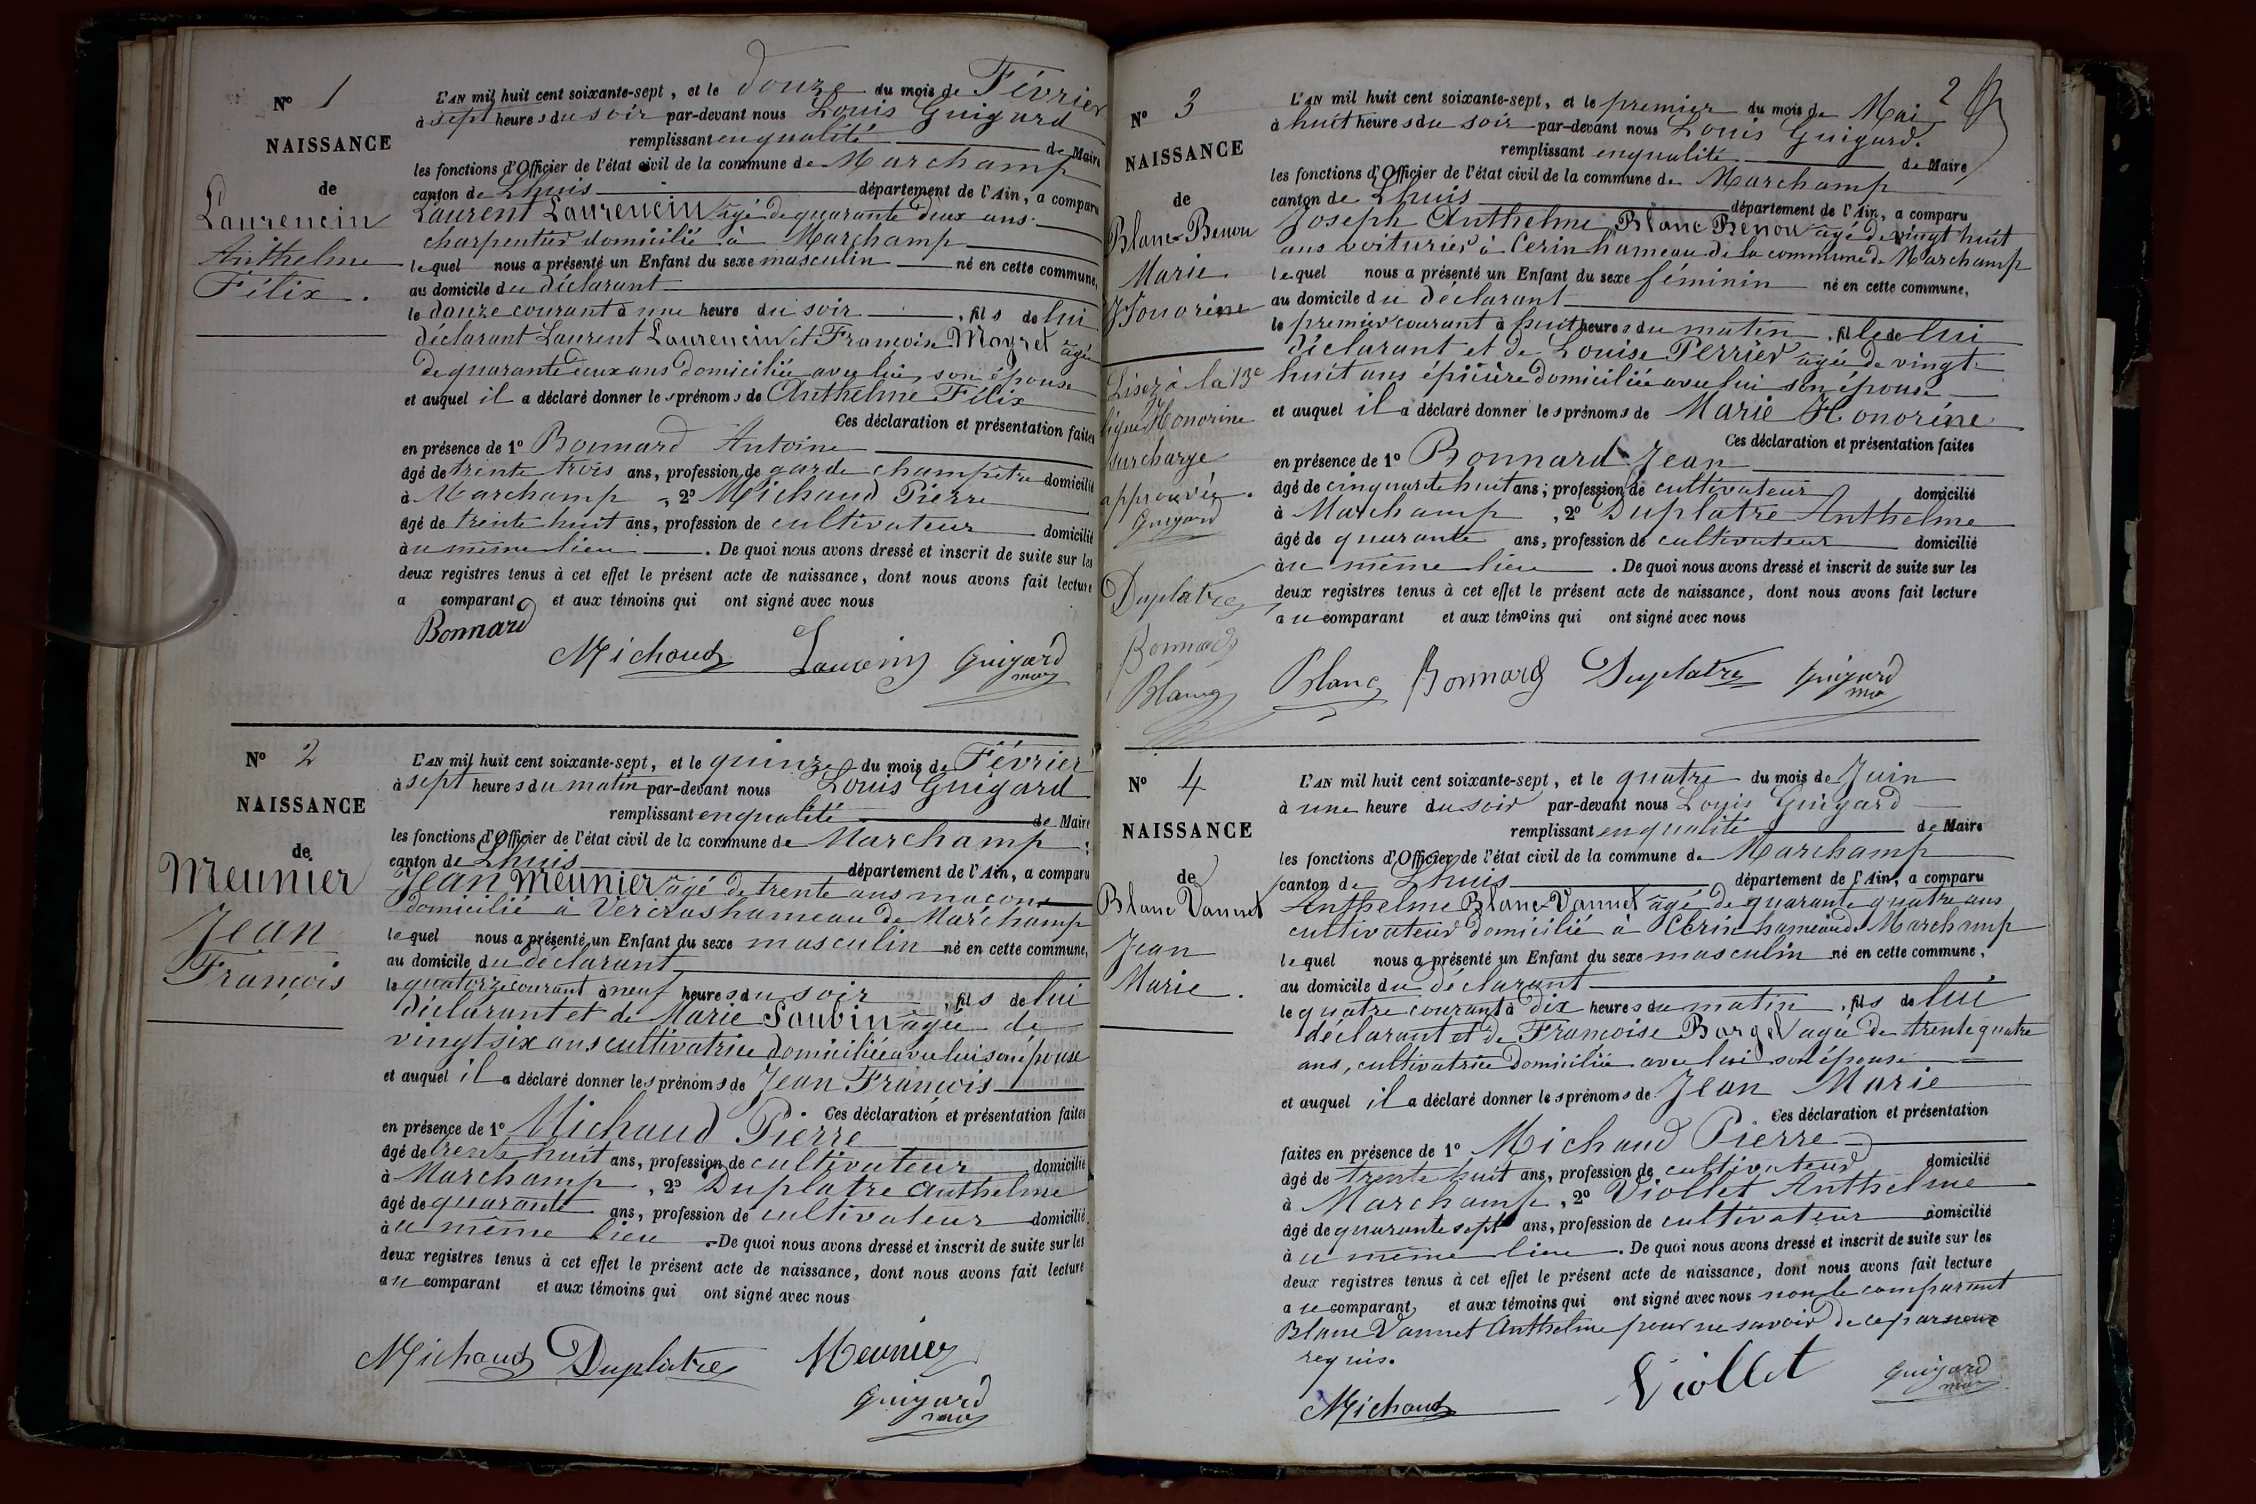 Nº 1
NAISSANCE
de
Laurencin
Anthelme
Félix.
L'AN mil huit cent soixante-sept, et le douze du mois de Février
à sept heures du soir par-devant nous Louis Guigard
remplissant en qualité de Maire
les fonctions d'Officier de l'état civil de la commune de Marchamp
canton de Lhuis département de l'Ain, a comparu
Laurent Laurencin âgé de quarante deux ans
charpentier domicilié à Marchamp
lequel nous a présenté un Enfant du sexe masculin né en cette commune,
au domicile du déclarant
le douze courant à une heure du soir, fils de lui
déclarant Laurent Laurencin et Francoise Moyret âgée
de quarante deux ans domiciliée avec lui, son épouse
et auquel il a déclaré donner les prénoms de Anthelme Félix
Ces déclaration et présentation faites
en présence de 1º Bonnard Antoine
âgé de trente trois ans, profession de garde champêtre domicilié
à Marchamp, 2º Michaud Pierre
âgé de trente huit ans, profession de cultivateur domicilié
au même lieu. De quoi nous avons dressé et inscrit de suite sur les
deux registres tenus à cet effet le présent acte de naissance, dont nous avons fait lecture
a comparant et aux témoins qui ont signé avec nous
Bonnard
Michaud Laurencin Guigard
Nº 2
NAISSANCE
de
Meunier
Jean
François
L'AN mil huit cent soixante-sept, et le quinze du mois de Février
à sept heures du matin par-devant nous Louis Guigard
remplissant en qualité de Maire
les fonctions d'Officier de l'état civil de la commune de Marchamp
canton de Lhuis département de l'Ain, a comparu
Jean Meunier âgé de trente ans maçon
domicilié à Vercras hameau de Marchamp
lequel nous a présenté un Enfant du sexe masculin né en cette commune,
au domicile du déclarant
le quatorze courant à neuf heures du soir, fils de lui
déclarant et de Marie Soubin âgée de
vingt six ans cultivatrice domiciliée avec lui son épouse
et auquel il a déclaré donner les prénoms de Jean François
Ces déclaration et présentation faites
en présence de 1º Michaud Pierre
âgé de trente huit ans, profession de cultivateur domicilié
à Marchamp, 2º Duplatre Anthelme
âgé de quarante ans, profession de cultivateur domicilié
au même lieu. De quoi nous avons dressé et inscrit de suite sur les
deux registres tenus à cet effet le présent acte de naissance, dont nous avons fait lecture
au comparant et aux témoins qui ont signé avec nous
Michaud Duplatre Meunier
Guigard
2
Nº 3
NAISSANCE
de
Blanc-Benon
Marie
Honorine
Lisez à la 13e
ligne Honorine
surcharge
approuvée.
Guigard
Duplatre
Bonnard
Blanc
L'AN mil huit cent soixante-sept, et le premier du mois de Mai
à huit heures du soir par-devant nous Louis Guigard.
remplissant en qualité de Maire
les fonctions d'Officier de l'état civil de la commune de Marchamp
canton de Lhuis département de l'Ain, a comparu
Joseph Anthelme Blanc Benon âgé de vingt huit
ans voiturier à Cerin hameau de la commune de Marchamp
lequel nous a présenté un Enfant du sexe féminin né en cette commune,
au domicile du déclarant
le premier courant à huit heures du matin, fille de lui
déclarant et de Louise Perrier âgée de vingt
huit ans épicière domiciliée avec lui son épouse
et auquel il a déclaré donner les prénoms de Marie Honorine
Ces déclaration et présentation faites
en présence de 1º Bonnard Jean
âgé de cinquante huit ans; profession de cultivateur domicilié
à Marchamp, 2º Duplatre Anthelme
âgé de quarante ans, profession de cultivateur domicilié
au même lieu. De quoi nous avons dressé et inscrit de suite sur les
deux registres tenus à cet effet le présent acte de naissance, dont nous avons fait lecture
au comparant et aux témoins qui ont signé avec nous
Blanc Bonnard Duplatre Guigard
Nº 4
NAISSANCE
de
Blanc Vannet
Jean
Marie.
L'AN mil huit cent soixante-sept, et le quatre du mois de Juin
à une heure du soir par-devant nous Louis Guigard
remplissant en qualité de Maire
les fonctions d'Officier de l'état civil de la commune de Marchamp
canton de Lhuis département de l'Ain, a comparu
Anthelme Blanc-Vannet âgé de quarante quatre ans
cultivateur domicilié à Cerin hameau de Marchamp
lequel nous a présenté un Enfant du sexe masculin né en cette commune,
au domicile du déclarant
le quatre courant à dix heures du matin, fils de lui
déclarant et de Francoise Barge agée de trente quatre
ans, cultivatrice domiciliée avec lui son épouse
et auquel il a déclaré donner les prénoms de Jean Marie
Ces déclaration et présentation
faites en présence de 1º Michaud Pierre
âgé de trente huit ans, profession de cultivateur domicilié
à Marchamp, 2º Viollet Anthelme
âgé de quarante sept ans, profession de cultivateur domicilié
au même lieu. De quoi nous avons dressé et inscrit de suite sur les
deux registres tenus à cet effet le présent acte de naissance, dont nous avons fait lecture
au comparant, et aux témoins qui ont signé avec nous non le comparant
Blanc Vannet Anthelme pour ne savoir de ce par nous
requis.
Michaud Viollet Guigard